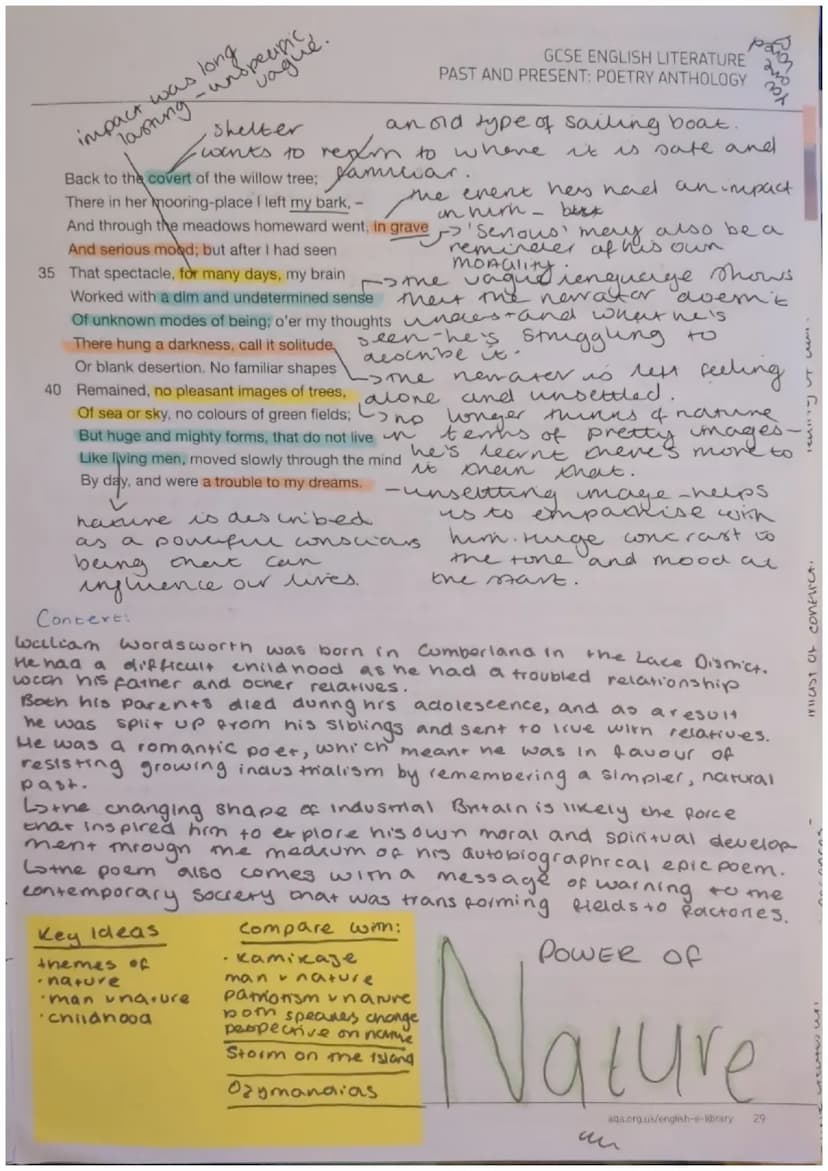 GCSE ENGLISH LITERATURE
PAST AND PRESENT: POETRY ANTHOLOGY
impact was long
lasting - unspecific
vague.
shelter
an old type of sailing boat.
wants to return to where it is safe and
familiar.
Back to the covert of the willow tree;
There in her mooring-place I left my bark, –
And through the meadows homeward went, in grave
And serious mood; but after I had seen
35 That spectacle, for many days, my brain
Worked with a dim and undetermined sense
Of unknown modes of being; o'er my thoughts
There hung a darkness, call it solitude
Or blank desertion. No familiar shapes
40 Remained, no pleasant images of trees,
Of sea or sky, no colours of green fields;
But huge and mighty forms, that do not live
Like living men, moved slowly through the mind
By day, and were a trouble to my dreams.
the event hers had an impact
on him -
'serious' may also be a
reminder of his own
morality.
the vague language shows
that the narrator doesn't
understand what he's
seen - he's struggling to
describe it.
the narrator is left feeling
alone and unsettled.
no longer thinks of nature
in terms of pretty images -
he's learnt there's more to
it than that.
- unsettling image - helps
us to empathise with
him. Huge contrast to
the tone and mood at
the start.
nature is described
as a powerful conscious
being that can
influence our lives.
Context:
William Wordsworth was born in Cumberland in the Lake District.
He had a difficult childhood as he had a troubled relationship
with his father and other relatives.
Both his parents died during his adolescence, and as a result
he was split up from his siblings and sent to live with relatives.
He was a romantic poet, which meant he was in favour of
resisting growing industrialism by remembering a simpler, natural
past.
↳ the changing shape of Industrial Britain is likely the force
that inspired him to explore his own moral and spiritual develop-
ment through the medium of his autobiographical epic poem.
↳ the poem also comes with a message of warning to the
contemporary society that was transforming fields to factories.
Key Ideas
themes of
· nature
· man v nature
· childhood
Compare with:
· Kamikaze
man v nature
patriotism v nature
both speakers change
perspective on nature
Storm on the Island
Ozymandias
POWER OF
Nature
aqa.org.uk/english-e-library 29